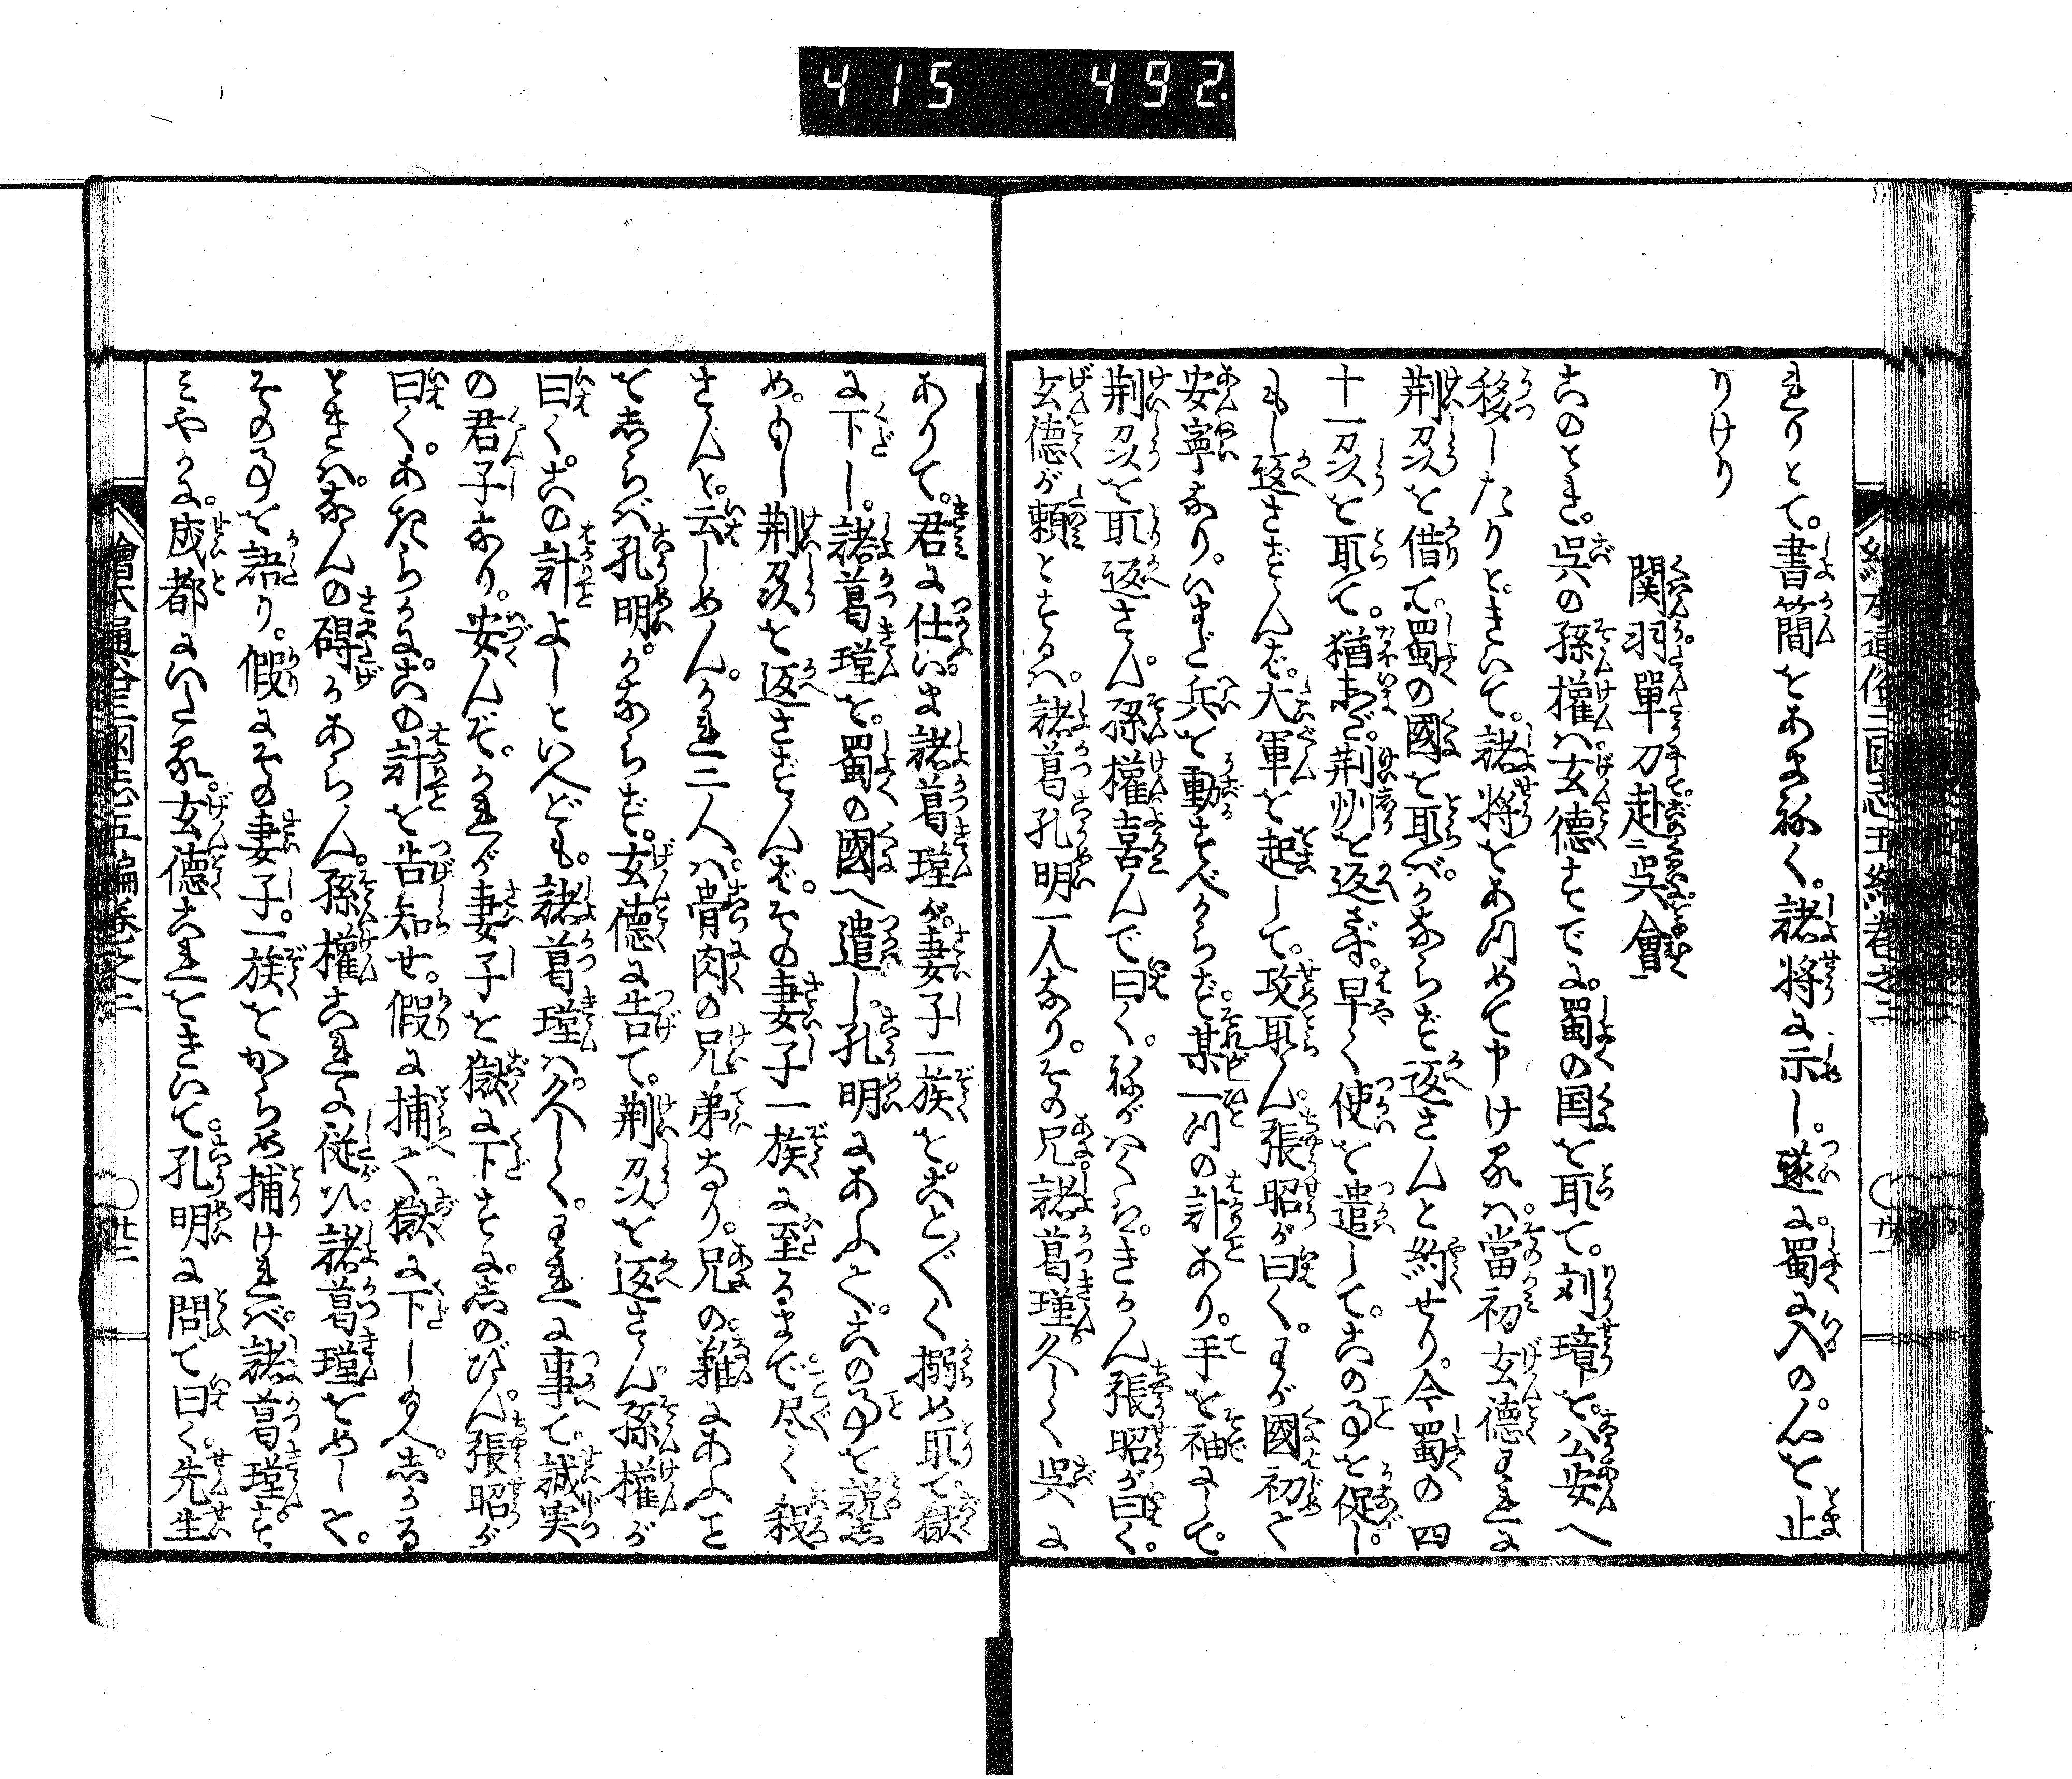 415 492
繪本通俗三國志五編卷之二 〇廿一
れりとて。書簡をあまねく。諸将に示し。遂に。蜀に入の心を止
りけり
関羽單刀赴呉會
このとき。呉の孫權ハ玄德すでに。蜀の国を取て。刘璋を。公安へ
移したりと。きいて。諸将をあつめて申けるハ。當初玄德われに
荆刕を借て。蜀の國を取バ。かならず返さんと約せり。今蜀の四
十一刕を取て。猶まだ荆州を返さず。早く使を遣して。この事を促し。
もし返さずんば。大軍を起して。攻取ん。張昭が曰く。わが國初て
安寧なり。いまだ兵を動すべからず某一つの計あり。手を袖にして。
荆刕を取返さん。孫權喜んで曰く。ねがハくハ。きかん張昭が曰く。
玄德が頼とするハ。諸葛孔明一人なり。その兄諸葛瑾久しく呉に
ありて。君に仕いま諸葛瑾が。妻子一族を。ことごとく搦め取て。獄
に下し。諸葛瑾を。蜀の國へ遣し。孔明にあふて。この事を説し
め。もし荆刕を返さずんば。その妻子一族に至るまで。尽く殺
さんと。云しめん。かれ二人ハ。骨肉の兄弟なり。兄の難にあふこと
をしらバ孔明。かならず。玄德に告て。荆刕を返さん。孫權が
曰く。この計よしといへども。諸葛瑾ハ。久しく。われに事て。誠実
の君子なり。安んぞ。かれが妻子を獄に下すに。しのびん。張昭が
曰く。あきらかに。この計を告知せ。假に捕て。獄に下し給へ。しかる
ときハ。なんの碍かあらん。孫權これに従ひ。諸葛瑾をめして。
その事を語り。假にその妻子。一族をからめ捕けれバ。諸葛瑾。す
ミやかに。成都にいたる。玄德これをきいて。孔明に問て曰く。先生
繪本通俗三國志五編卷之二 〇廿二